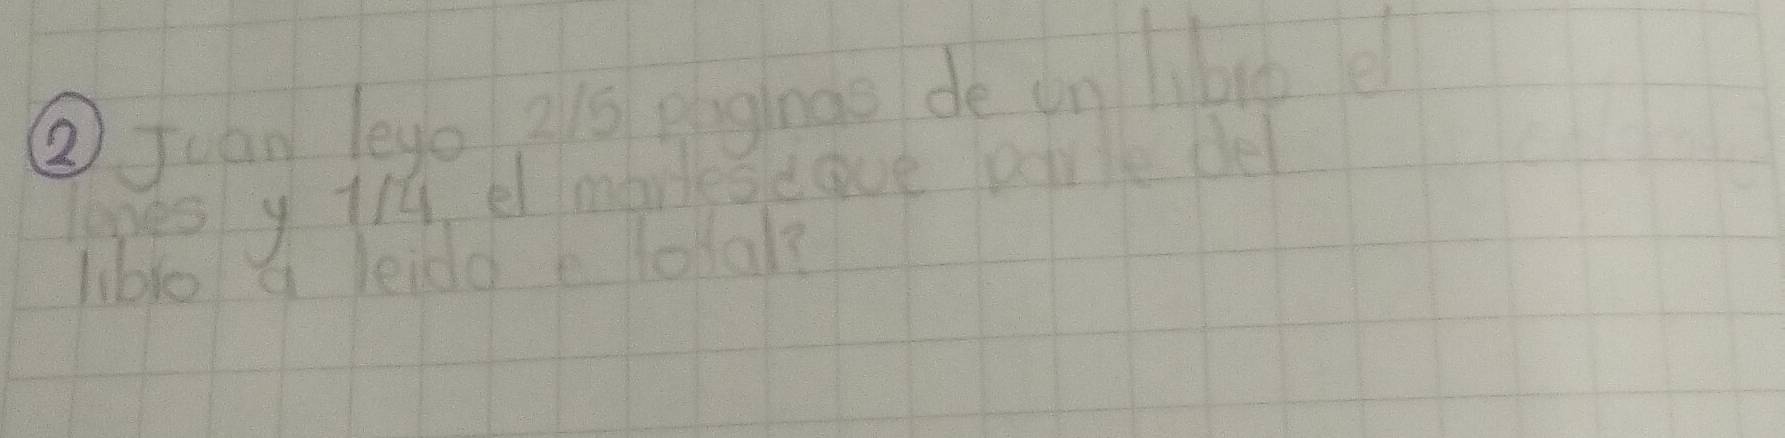 ② Juan leyo 2/5 paginas de un libro el
lones y 1/4 el martes¿que parte del
libro a leido e total?